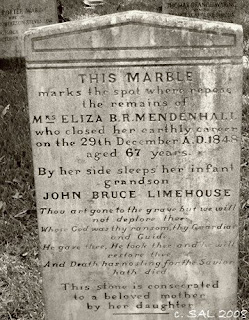 THIS MARBLE
marks the spot where repose
the remains of
MRS ELIZA B.R. MENDENHALL
who closed her earthly career
on the 29th December A.D. 1848
aged 67 years.
By her side sleeps her infant
grandson
JOHN BRUCE LIMEHOUSE
Thou art gone to the grave but we will
not deplore thee
Whose God was thy ransom, thy Guardian
and Guide
He gave thee, He took thee and he will
restore thee
And Death has no sting for the Savior
hath died
This stone is consecrated
to a beloved mother
by her daughter
c. SAL 2009